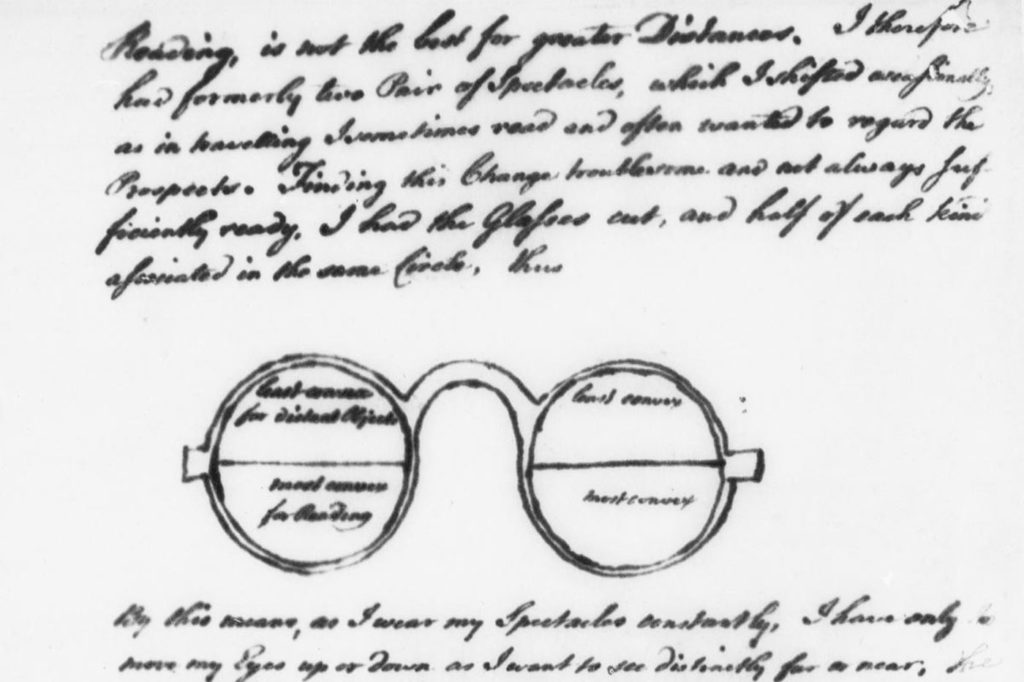 Reading, is not the best for greater Distances. I therefore
had formerly two Pair of Spectacles, which I shifted occasionally,
as in travelling I sometimes read and often wanted to regard the
Prospects. Finding this Change troublesome and not always suf-
ficiently ready, I had the Glasses cut, and half of each kind
associated in the same Circle, thus
least convex
for distant Objects
most convex
for Reading
least convex
most convex
By this means, as I wear my Spectacles constantly, I have only to
move my Eyes up or down as I want to see distinctly far or near, the